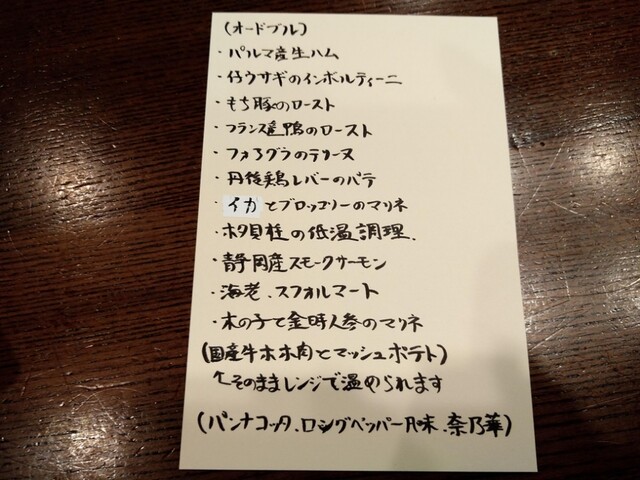 (オードブル)
・パルマ産生ハム
・仔ウサギのインボルティーニ
・もち豚のロースト
・フランス産鴨のロースト
・フォアグラのテリーヌ
・丹後鶏レバーのパテ
・イカとブロッコリーのマリネ
・ホタ貝柱の低温調理.
・静岡産スモークサーモン
・海老、スフォルマート
・木の子と金時人参のマリネ
(国産牛ホホ肉とマッシュポテト)
↖そのままレンジで温められます
(パンナコッタ、ロングペッパー風味、奈乃華)